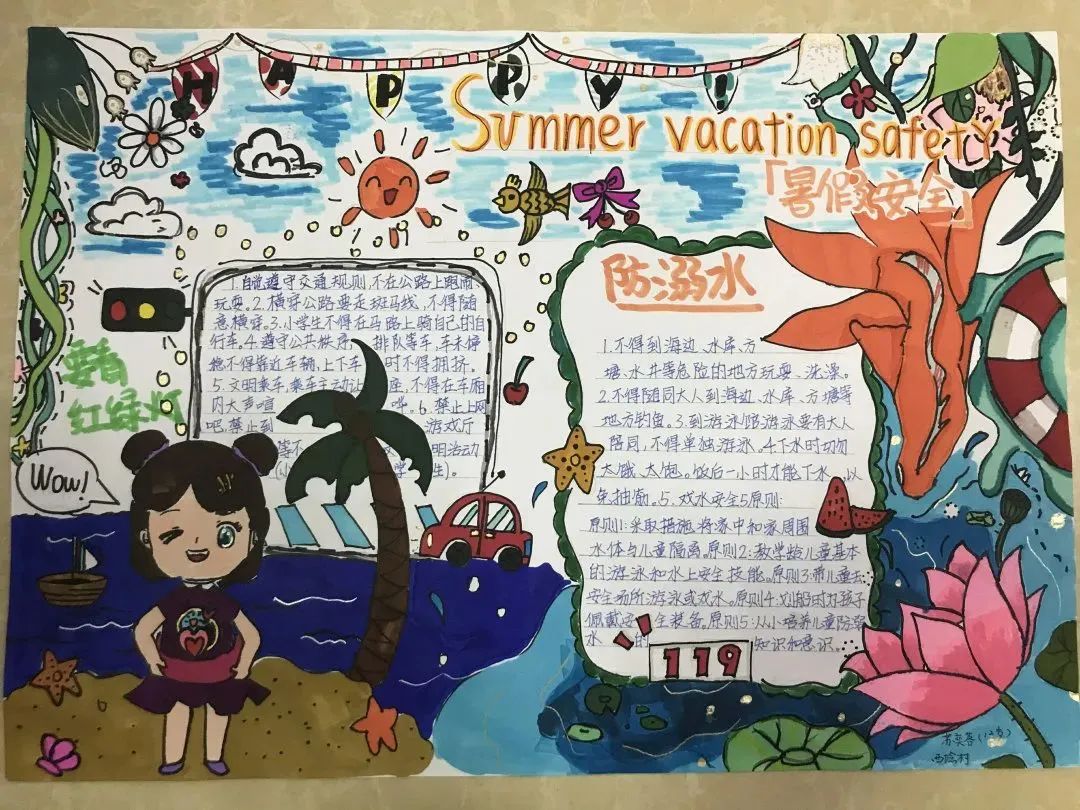 HAPPY!
Summer vacation safety
「暑假安全」
要看
红绿灯
Wow!
1.自觉遵守交通规则,不在公路上跑闹
玩耍。2.横穿公路要走斑马线,不得随
意横穿。3.小学生不得在马路上骑自己的自
行车。4.遵守公共秩序 排队等车,车未停
稳不得靠近车辆,上下车 时不得拥挤。
5.文明乘车,乘车主动让 座,不得在车厢
内大声喧 哗。6.禁止上网
吧,禁止到 游戏厅
等不 明活动
(小 学 生)。
防溺水
1.不得到海边、水库、方
塘、水井等危险的地方玩耍、洗澡。
2.不得随同大人到海边、水库、方塘等
地方钓鱼。3.到游泳馆游泳要有大人
陪同,不得单独游泳。4.下水时切勿
太饿、太饱。饭后一小时才能下水,以
免抽筋。5.戏水安全5原则:
原则1:采取措施将家中和家周围
水体与儿童隔离。原则2:教学给儿童基本
的游泳和水上安全技能。原则3:带儿童去
安全场所游泳或戏水。原则4:划船时为孩子
佩戴 生装备。原则5:从小培养儿童防溺
水 的 知识和意识。
119
(12岁)